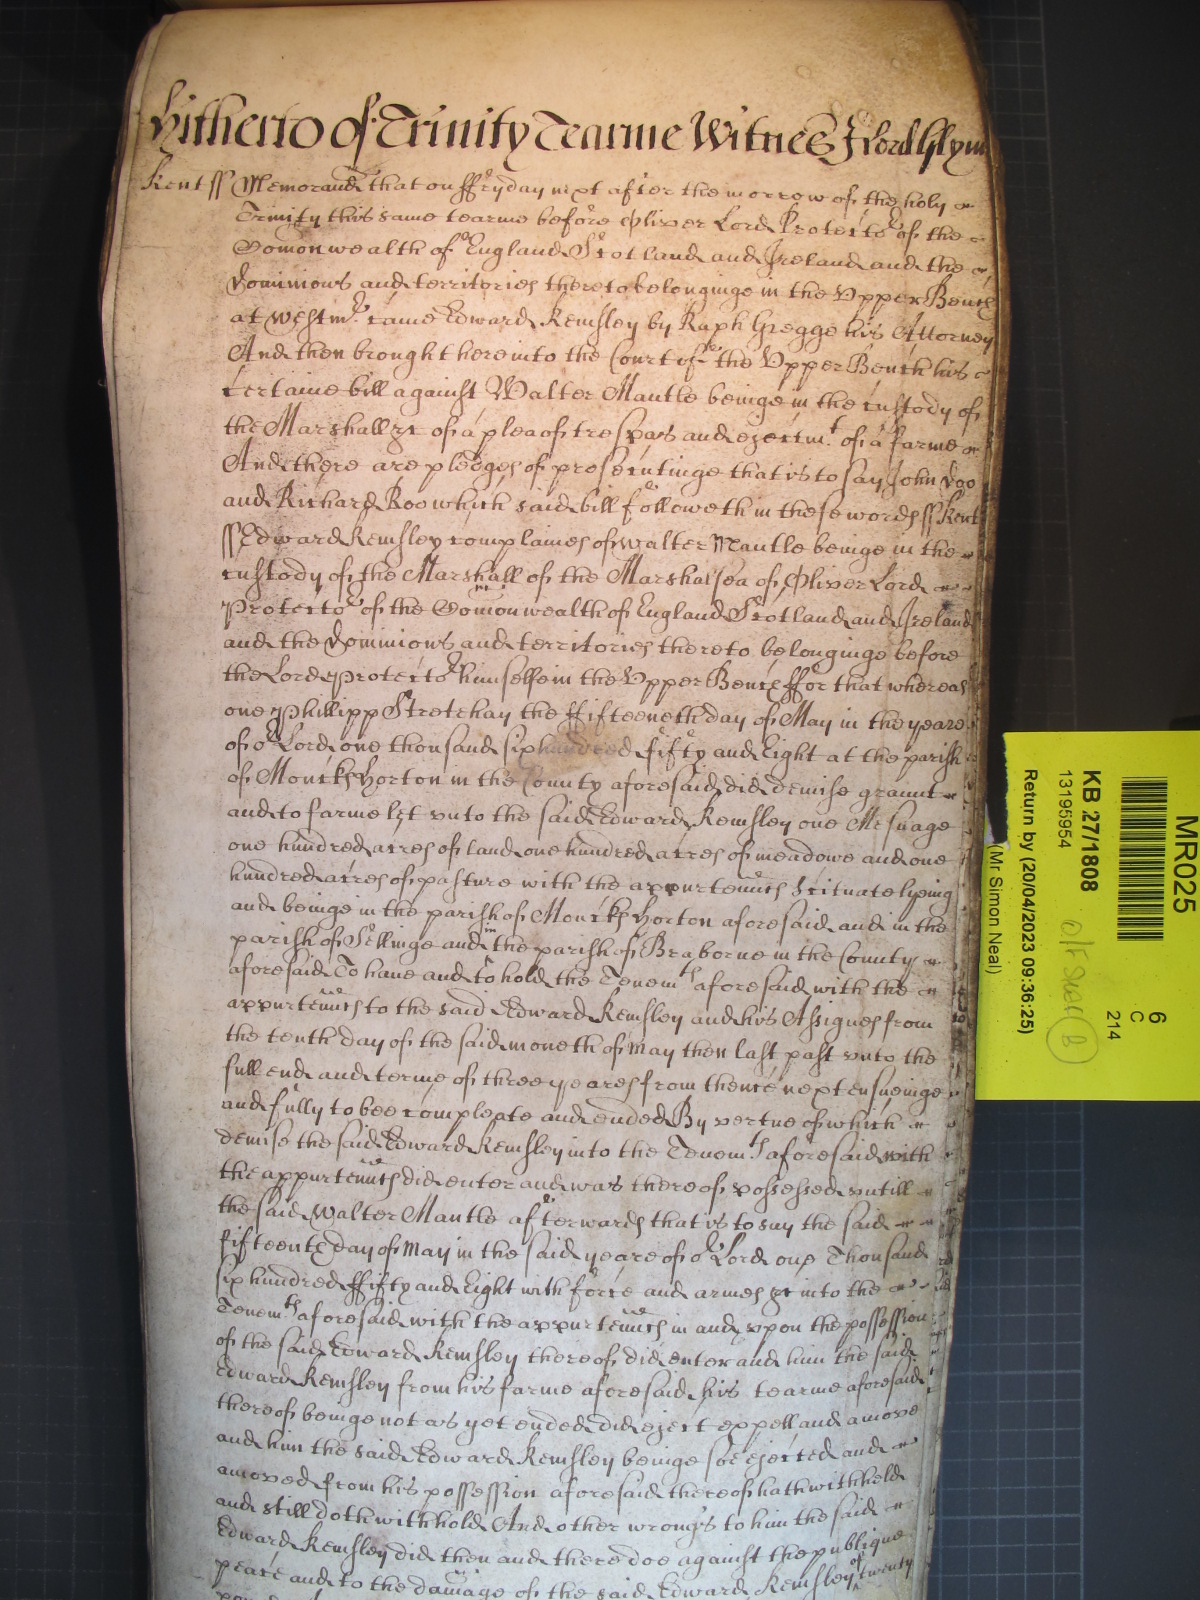 Hitherto of Trinity Tearme Witnes J Lord Glynn
Kent ss Memorand that on ffryday next after the morrow of the holy
Trinity this same tearme before Oliver Lord Protector of the
Comonwealth of England Scotland and Ireland and the
Dominions and territories thereto belonginge in the Upper Bench
at Westmr came Edward Kemsley by Raph Gregge his Attorney
And then brought here into the Court of the Upper Bench his
certaine bill against Walter Mantle beinge in the custody of
the Marshall &c of a plea of trespas and ejectmt of a farme
And there are pledges of prosecutinge that is to say John Doo
and Richard Roo which said bill followeth in these words ss Kent
ss Edward Kemsley complaines of Walter Mantle beinge in the
custody of the Marshall of the Marshalsea of Oliver Lord
Protector of the Comonwealth of England Scotland and Ireland
and the Dominions and territories thereto belonginge before
the Lord Protector himselfe in the Upper Bench ffor that whereas
one Phillipp Stretchay the ffifteeneth day of May in the yeare
of or Lord one thousand six hundred fifty and Eight at the parish
of Monckes Horton in the County aforesaid did demise graunt
and to farme lett unto the said Edward Kemsley one Messuage
one hundred acres of land one hundred acres of meadowe and one
hundred acres of pasture with the appurtenncs Scituate lyeing
and beinge in the parish of Monckes Horton aforesaid and in the
parish of Sellinge and in the parish of Braborne in the County
aforesaid To have and to hold the Tenemts aforesaid with the
appurtenncs to the said Edward Kemsley and his Assignes from
the tenth day of the said moneth of May then last past unto the
full end and terme of three yeares from thence next ensueinge
and fully to bee compleate and ended By vertue of which
demise the said Edward Kemsley into the Tenemts aforesaid with
the appurtenncs did enter and was thereof possessed untill
the said Walter Mantle afterwards that is to say the said
fifteenth day of May in the said yeare of or Lord one Thousand
six hundred ffifty and Eight with force and armes &c into the
Tenemts aforesaid with the appurtenncs in and upon the possession
of the said Edward Kemsley thereof did enter and him the said
Edward Kemsley from his farme aforesaid his tearme aforesaid
thereof beinge not as yet ended did eject expell and amove
and him the said Edward Kemsley beinge soe ejected and
amoved from his possession aforesaid thereof hath withheld
and still doth withhold And other wrongs to him the said
Edward Kemsley did then and there doe against the publique
peace and to the damage of the said Edward Kemsley of twenty
MR025
6
C
214
KB 27/1808
13195954
o/f Shelf (B)
Return by (20/04/2023 09:36:25)
(Mr Simon Neal)